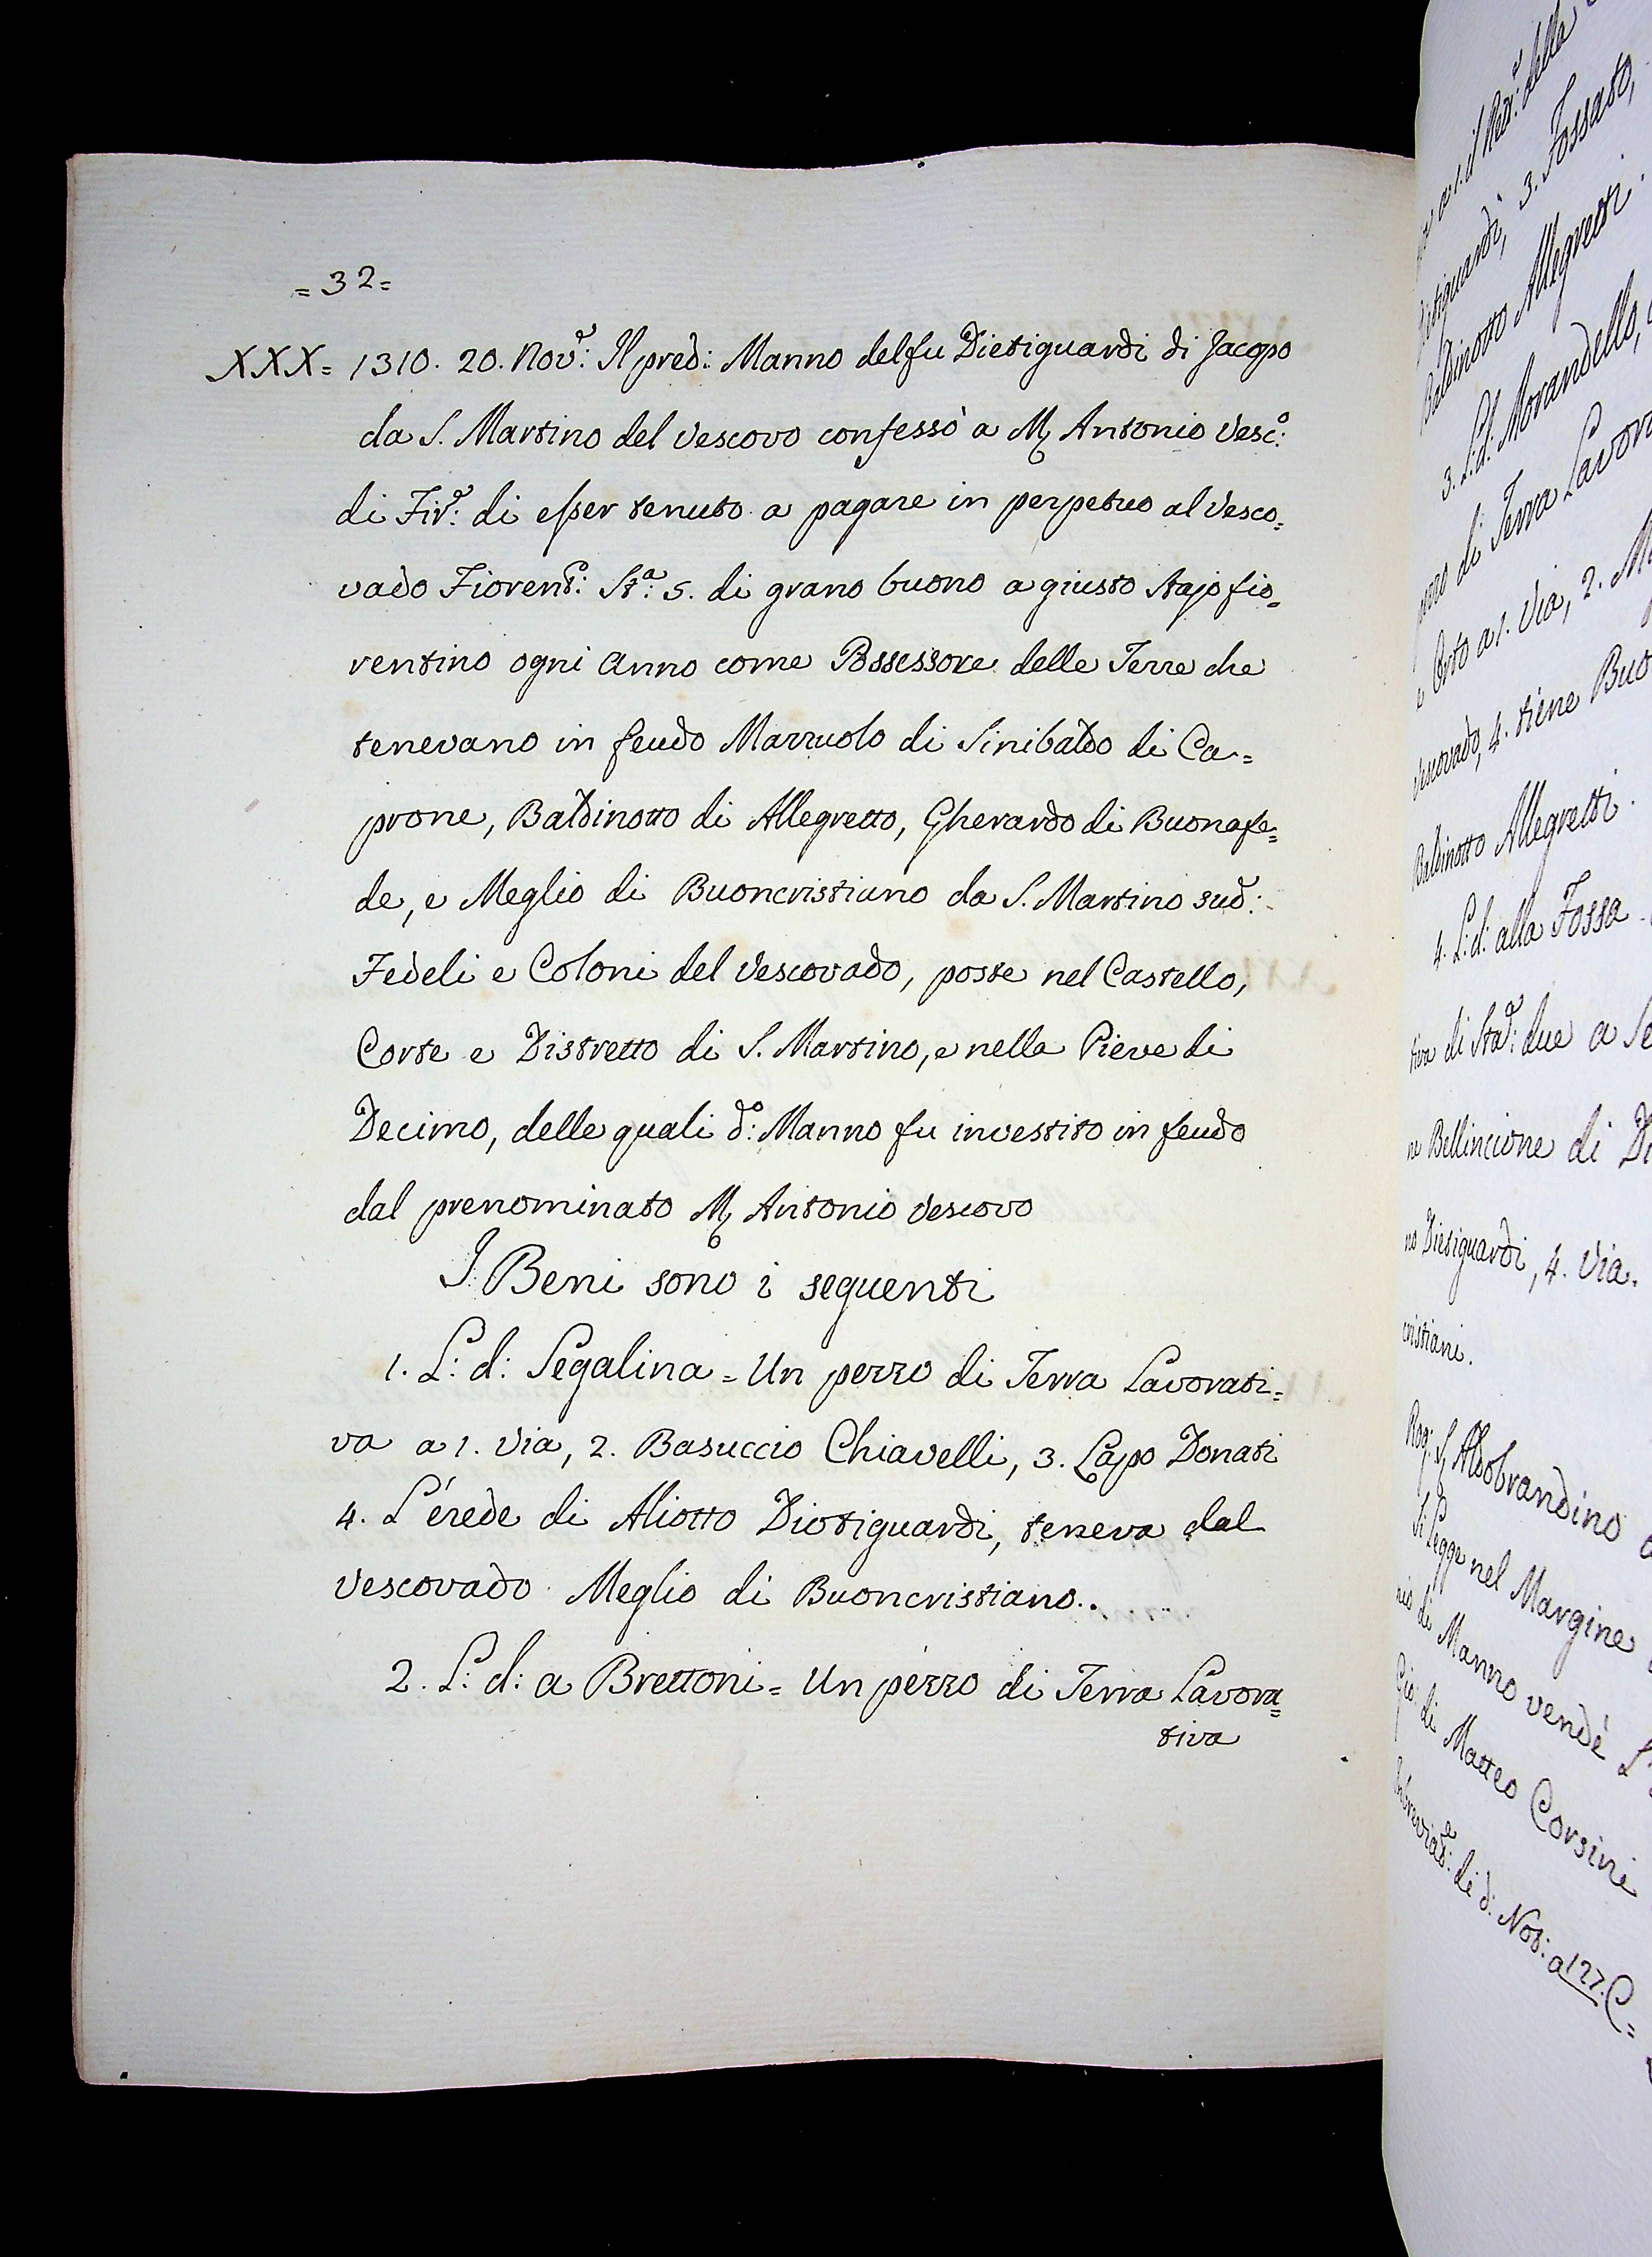 =32=
XXX= 1310. 20. Nov.e: Il pred: Manno del fu Dietiguardi di Jacopo
da S. Martino del Vescovo confessò a M. Antonio Vesc.o:
di Fir.e: di esser tenuto a pagare in perpetuo al Vesco=
vado Fiorent.o: St.a: 5. di grano buono a giusto stajo fio=
rentino ogni anno come Possessore delle Terre che
tenevano in feudo Mazzuolo di Sinibaldo di Ca=
prone, Baldinotto di Allegretto, Gherardo di Buonafe=
de, e Meglio di Buoncristiano da S. Martino sud.o:
Fedeli e Coloni del Vescovado, poste nel Castello,
Corte e Distretto di S. Martino, e nella Pieve di
Decimo, delle quali d.o: Manno fu investito in feudo
dal prenominato M. Antonio Vescovo
I Beni sono i seguenti
1. L: d: Segalina = Un pezzo di Terra Lavorati=
va a 1. Via, 2. Basuccio Chiavelli, 3. Lapo Donati
4. L'erede di Aliotto Diotiguardi, teneva dal
Vescovado Meglio di Buoncristiano.
2. L: d: a Brettoni = Un pezzo di Terra Lavora=
tiva
a 1. il Red.e: della
Dietiguardi, 3. Fossato,
Baldinotto Allegretti.
3. L: d: Morandello,
di Terra Lavora
Orto a 1. Via, 2. M
Vescovado, 4. tiene Buo
Baldinotto Allegretti.
4. L: d: alla Fossa
tiva di Sta.a: due a Se
ne Bellincione di Di
no Dietiguardi, 4. Via.
cristiani.
Rog: S. Aldobrandino
Si Legge nel Margine
nio di Manno vendè L
Gio: di Matteo Corsini
di d: Not: a 127. C=